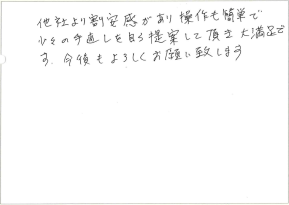 他社より割安感があり操作も簡単で
少々の手直しを自ら提案して頂き大満足で
す。今後もよろしくお願い致します